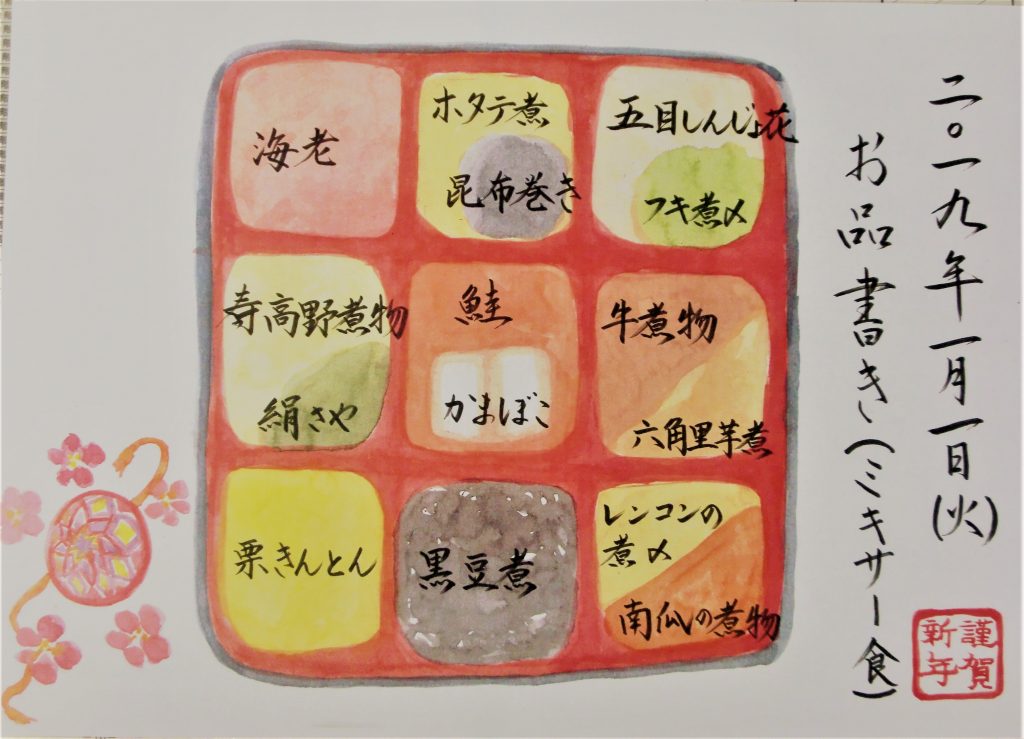 二〇一九年一月一日(火)
お品書き(ミキサー食)
謹賀
新年
海老
ホタテ煮
昆布巻き
五目しんじょ花
フキ煮〆
寿高野煮物
絹さや
鮭
かまぼこ
牛煮物
六角里芋煮
栗きんとん
黒豆煮
レンコンの
煮〆
南瓜の煮物